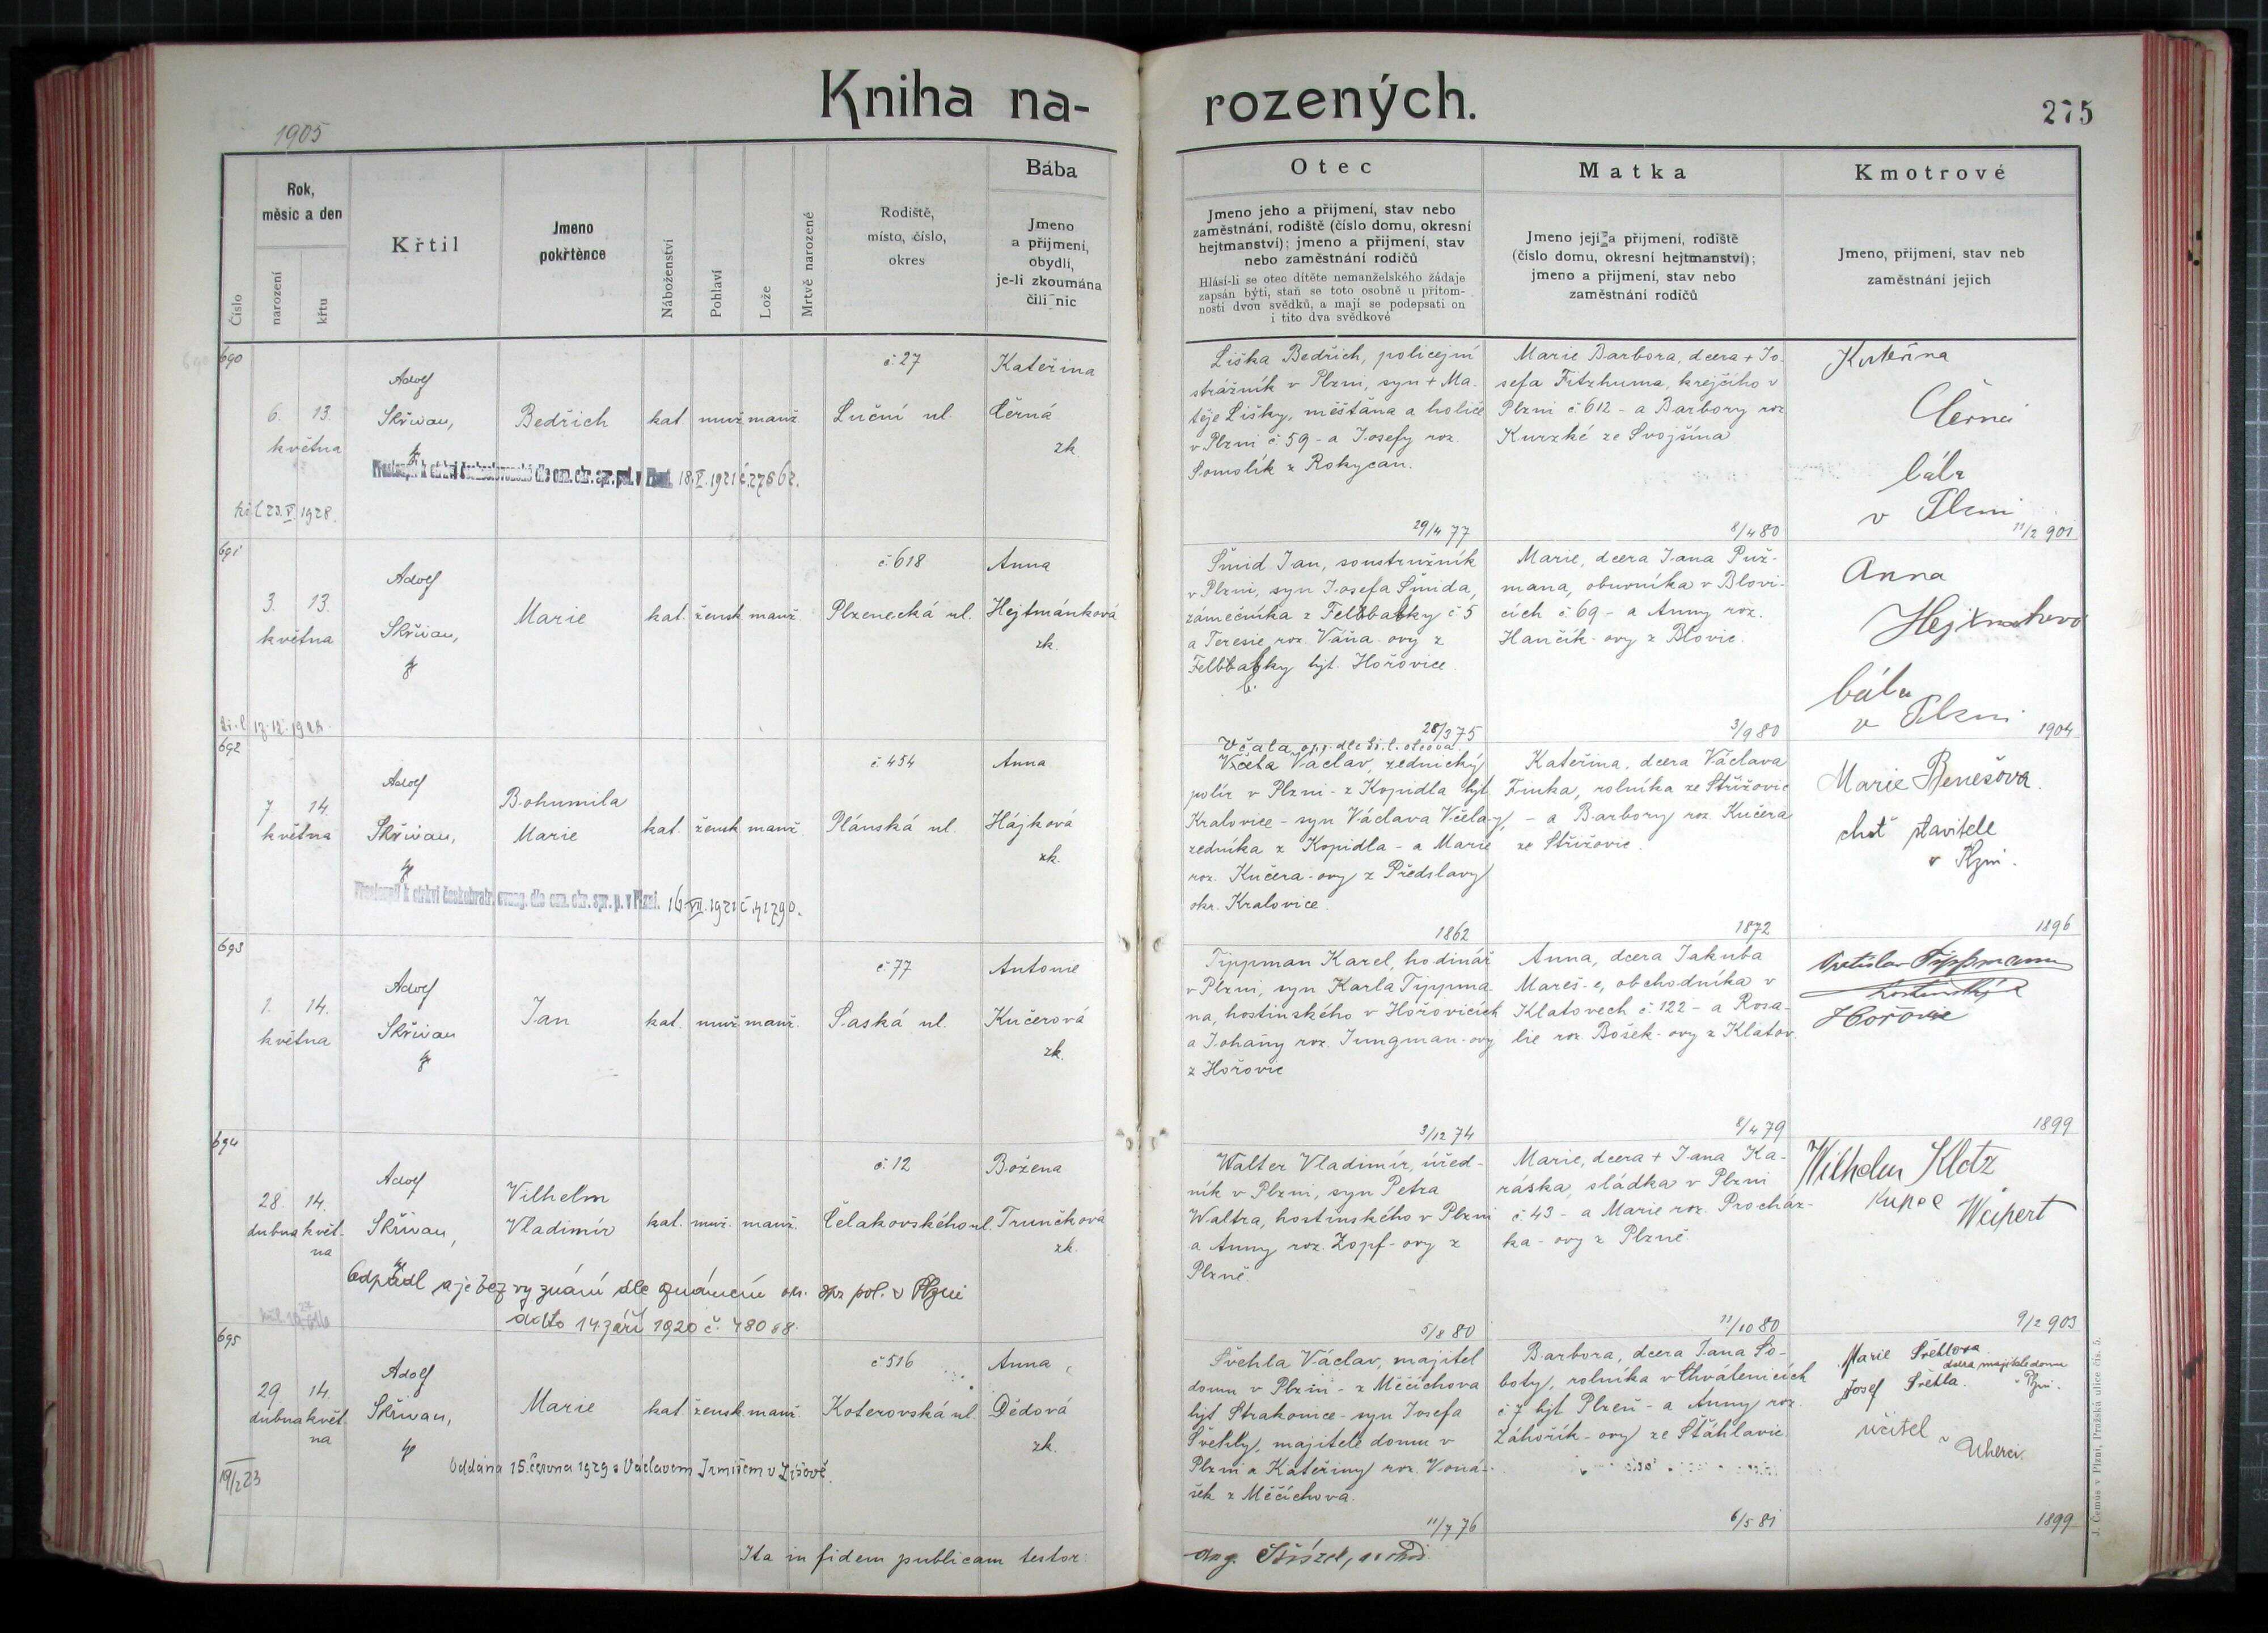 Kniha narozených.
275
1905
Číslo
Rok, měsíc a den
narození
křtu
Křtil
Jmeno pokřtěnce
Náboženství
Pohlaví
Lože
Mrtvě narozené
Rodiště, místo, číslo, okres
Bába
Jmeno a přijmení, obydlí, je-li zkoumána čili nic
Otec
Jmeno jeho a přijmení, stav nebo
zaměstnání, rodiště (číslo domu, okresní
hejtmanství); jmeno a přijmení, stav
nebo zaměstnání rodičů
Hlásí-li se otec dítěte nemanželského žádaje
zapsán býti, staň se toto osobně u přítom-
nosti dvou svědků, a mají se podepsati on
i tito dva svědkové
Matka
Jmeno její a přijmení, rodiště
(číslo domu, okresní hejtmanství);
jmeno a přijmení, stav nebo
zaměstnání rodičů
Kmotrové
Jmeno, přijmení, stav neb
zaměstnání jejich
690
6. 13.
května
Adolf
Skřivan,
Bedřich
kat. muž. manž.
č. 27
Luční ul.
Kateřina
Černá
zk.
18. V. 1921 č. 27662.
23. V 1928.
Liška Bedřich, policejní
strážník v Plzni, syn + Ma-
těje Lišky, měštana a holiče
v Plzni č 59 - a Josefy roz.
Somolík z Rokycan.
29/4 77
Marie Barbora, dcera + Jo-
sefa Fitzhuma, krejčího v
Plzni č 612 - a Barbory roz
Kurzké ze Svojšína
8/4 80
Kateřina
Černá
bába
v Plzni
11/2 901
691
3. 13.
května
Adolf
Skřivan,
Marie
kat. žensk. manž.
č. 618
Plzenecká ul.
Anna
Hejtmánková
zk.
Šmid Jan, soustružník
v Plzni, syn Josefa Šmida,
zámečníka z Felbbabky č 5
a Teresie roz. Váňa-ovy z
Felbbabky hjt. Hořovice.
28/3 75
Marie, dcera Jana Puž-
mana, obuvníka v Blovi-
cích č 69 - a Anny roz.
Hančík-ovy z Blovic.
3/9 80
Anna
bába
v Plzni
1904
692
7 14.
května
Adolf
Skřivan,
Bohumila
Marie
kat. žensk. manž.
Přestoupil k církvi českobratr. evang. dle ozn. okr. spr. p. v Plzni. 16. VII. 1921 č. 41790.
č. 454
Plánská ul.
Anna
Hájková
zk.
Včala opr. dle kř. l. otcova.
Včela Václav, zednický
polír v Plzni - z Kopidla hjt.
Kralovice - syn Václava Včely,
zedníka z Kopidla - a Marie
roz. Kučera-ovy z Předslavy
okr. Kralovice.
1862
Kateřina, dcera Václava
Finka, rolníka ze Střížovic
- a Barbory roz. Kučera
ze Střížovic.
1872
Marie Benešová.
choť stavitele
v Plzni.
1896
693
1. 14.
května
Adolf
Skřivan
Jan
kat. muž. manž.
č. 77
Saská ul.
Antonie
Kučerová
zk.
Tippman Karel, hodinář
v Plzni, syn Karla Tippma-
na, hostinského v Hořovicích
a Johany roz. Jungman-ovy
z Hořovic
3/12 74
Anna, dcera Jakuba
Mareš-e, obchodníka v
Klatovech č. 122 - a Rosa-
lie roz. Bošek-ovy z Klatov.
8/4 79
Vratislav Tippmann
hostinský
Hořovic
1899
694
28. 14.
dubna květ-
na
Adolf
Skřivan,
Vilhelm
Vladimír
kat. muž. manž.
Odpadl a je bez vyznání dle oznámení okr. spr. pol. v Plzni
ddto 14. září 1920 č. 48068.
č. 12
Čelakovského ul.
Božena
Trunčková
zk.
Walter Vladimír, úřed-
ník v Plzni, syn Petra
Waltra, hostinského v Plzni
a Anny roz. Zopf-ovy z
Plzně.
5/8 80
Marie, dcera + Jana Ka-
ráska, sládka v Plzni
č. 43 - a Marie roz. Procház-
ka-ovy z Plzně.
11/10 80
Wilhelm Klotz
kupec Weipert
9/2 903
695
29 14.
dubna květ-
na
19/2 23
Adolf
Skřivan,
Marie
kat. žensk. manž.
Oddána 15. června 1929 s Václavem
č 516
Koterovská ul.
Anna
Dědová
zk.
Švehla Václav, majitel
domu v Plzni - z Měčichova
hjt Strakonice - syn Josefa
Švehly, majitele domu v
Plzni a Kateřiny roz. Voná-
šek z Měčichova.
11/7 76
Barbora, dcera Jana So-
boty, rolníka v Chválenicích
č 7 hjt Plzeň - a Anny roz.
Záhořík-ovy ze Štáhlavic.
6/5 81
Marie Švehlova
dcera majitele domu
v Plzni.
Josef Švehla.
učitel v Úherci.
1899
Ita in fidem publicam testor:
J. Čemus v Plzni, Pražská ulice čís. 5.